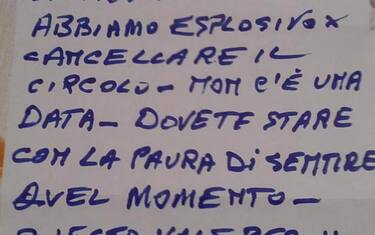 ABBIAMO ESPLOSIVO X
CANCELLARE IL
CIRCOLO - NON C'È UNA
DATA - DOVETE STARE
CON LA PAURA Di SENTIRE
QUEL MOMENTO -